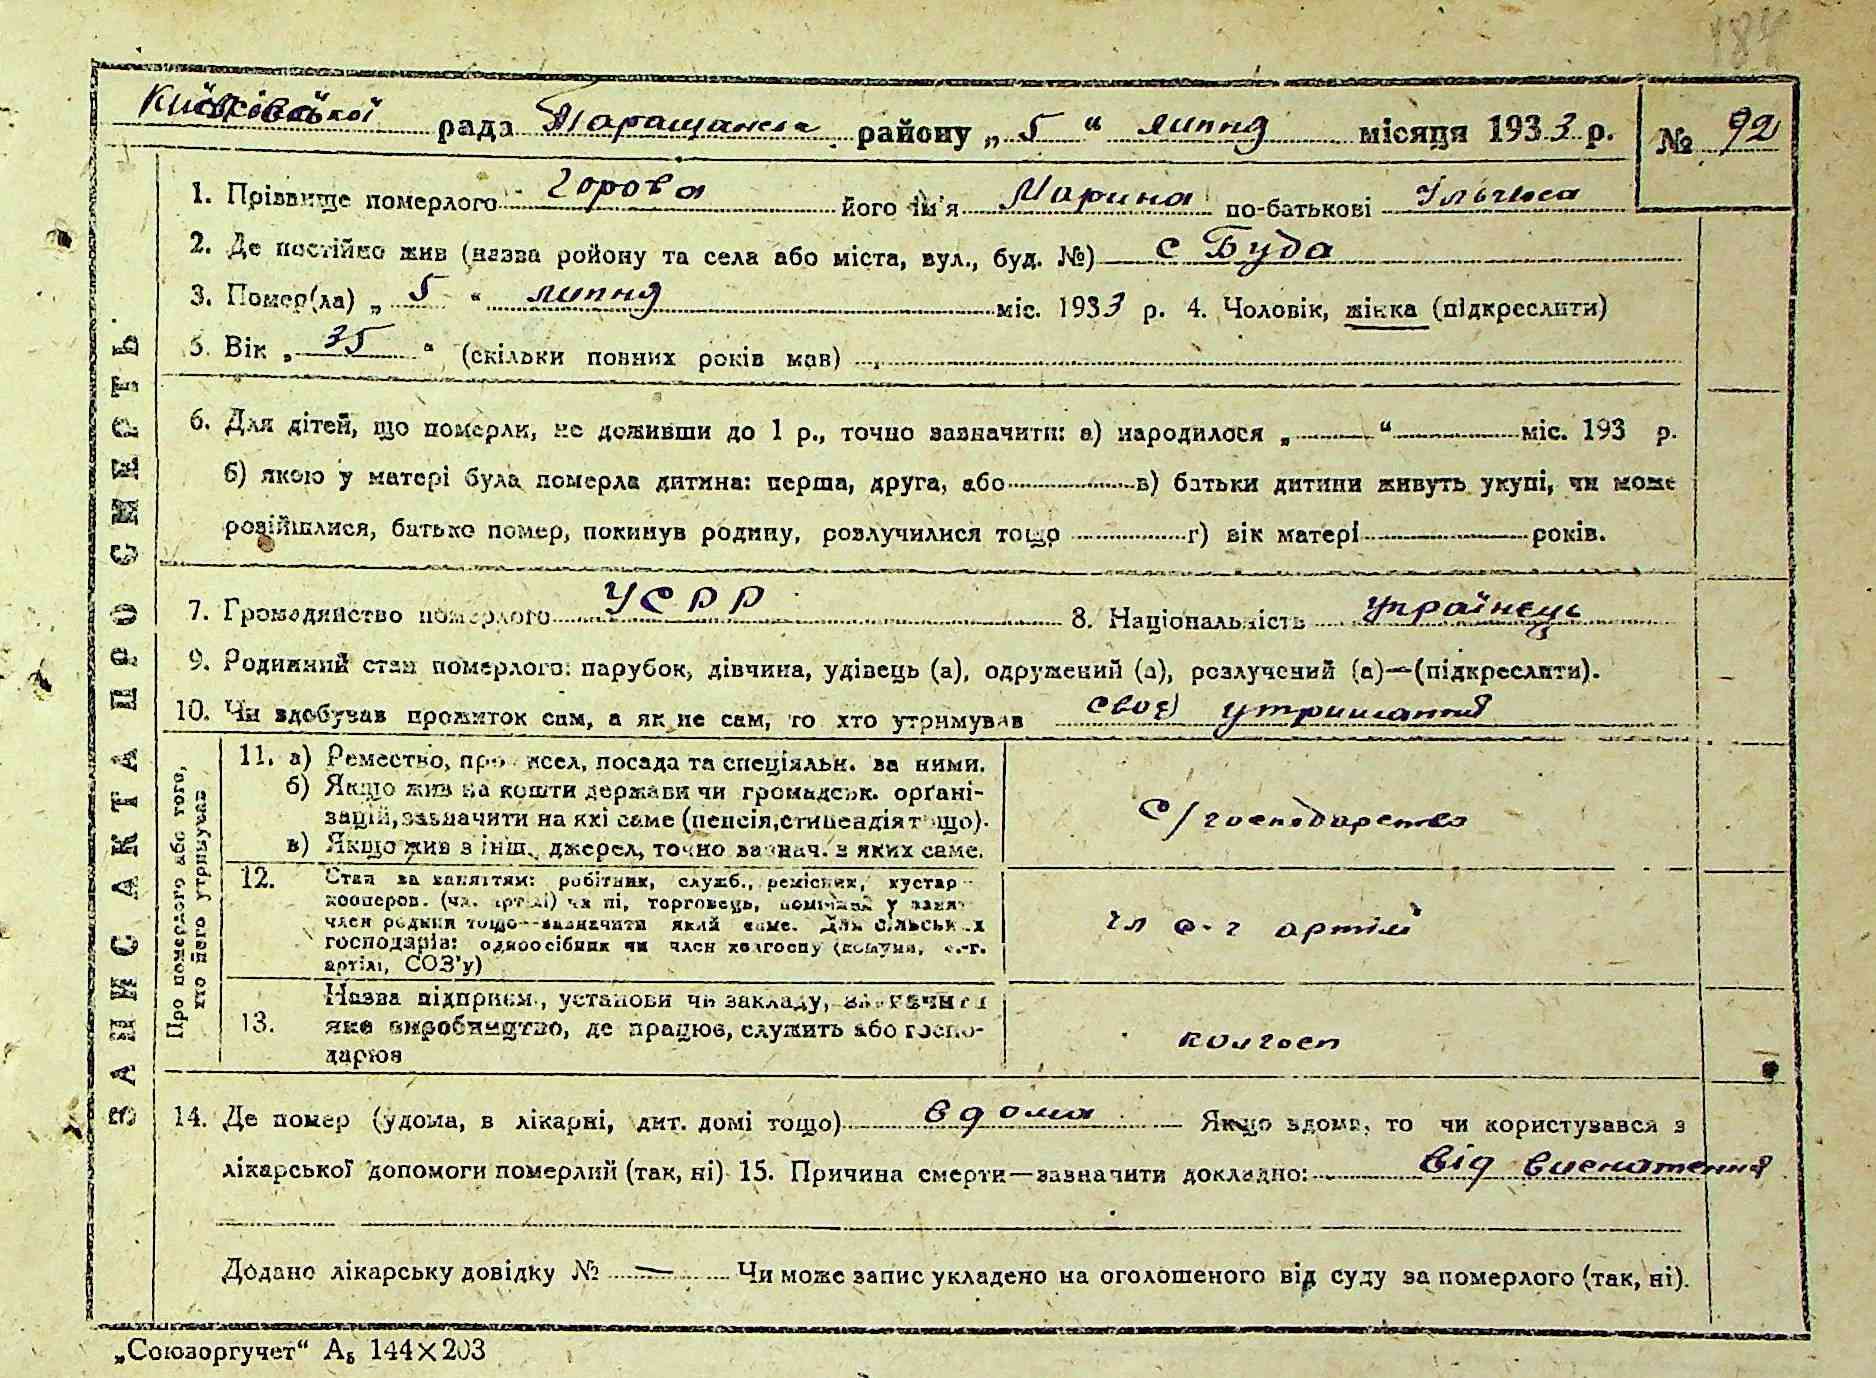 рада Таращанськ району „ 5 “ липня місяця 1933 р. № 92
1. Прізвище померлого Горова його ім'я Марина по-батькові
2. Де постійно жив (назва ройону та села або міста, вул., буд. №) с Буда
3. Помер(ла) „ 5 “ липня міс. 1933 р. 4. Чоловік, жінка (підкреслити)
5. Вік „ 35 “ (скільки повних років мав)
6. Для дітей, що померли, не доживши до 1 р., точно зазначити: а) народилося „ “ міс. 193 р.
б) якою у матері була померла дитина: перша, друга, або в) батьки дитини живуть укупі, чи може
розійшлися, батько помер, покинув родину, розлучилися тощо г) вік матері років.
7. Громадянство померлого УСРР 8. Національність українець
9. Родинний стан померлого: парубок, дівчина, удівець (а), одружений (а), розлучений (а)—(підкреслити).
10. Чи здобував прожиток сам, а як не сам, то хто утримував своє утримання
ЗАПИС АКТА ПРО СМЕРТЬ
Про померлого або того,
хто його утримував
11. а) Ремество, промисел, посада та спеціяльн. за ними.
б) Якщо жив на кошти держави чи громадськ. орґані-
зацій, зазначити на які саме (пенсія, стипендія тощо).
в) Якщо жив з інш. джерел, точно зазнач. з яких саме.
С/господарство
12. Стан за заняттям: робітник, служб., ремісник, кустар
кооперов. (чл. артілі) чи ні, торговець, помічник у занят
член родини тощо—зазначити який саме. Для сільських
господарів: одноосібник чи член колгоспу (комуни, с.-г.
артілі, СОЗ'у)
чл с-г артілі
13. Назва підприєм., установи чи закладу, зазначити
яке виробництво, де працює, служить або госпо-
дарює
колгосп
14. Де помер (удома, в лікарні, дит. домі тощо) вдома Якщо вдома, то чи користувався з
лікарської допомоги померлий (так, ні) 15. Причина смерти—зазначити докладно: від виснаження
Додано лікарську довідку № — Чи може запис укладено на оголошеного від суду за померлого (так, ні).
„Союзоргучет“ А₅ 144×203